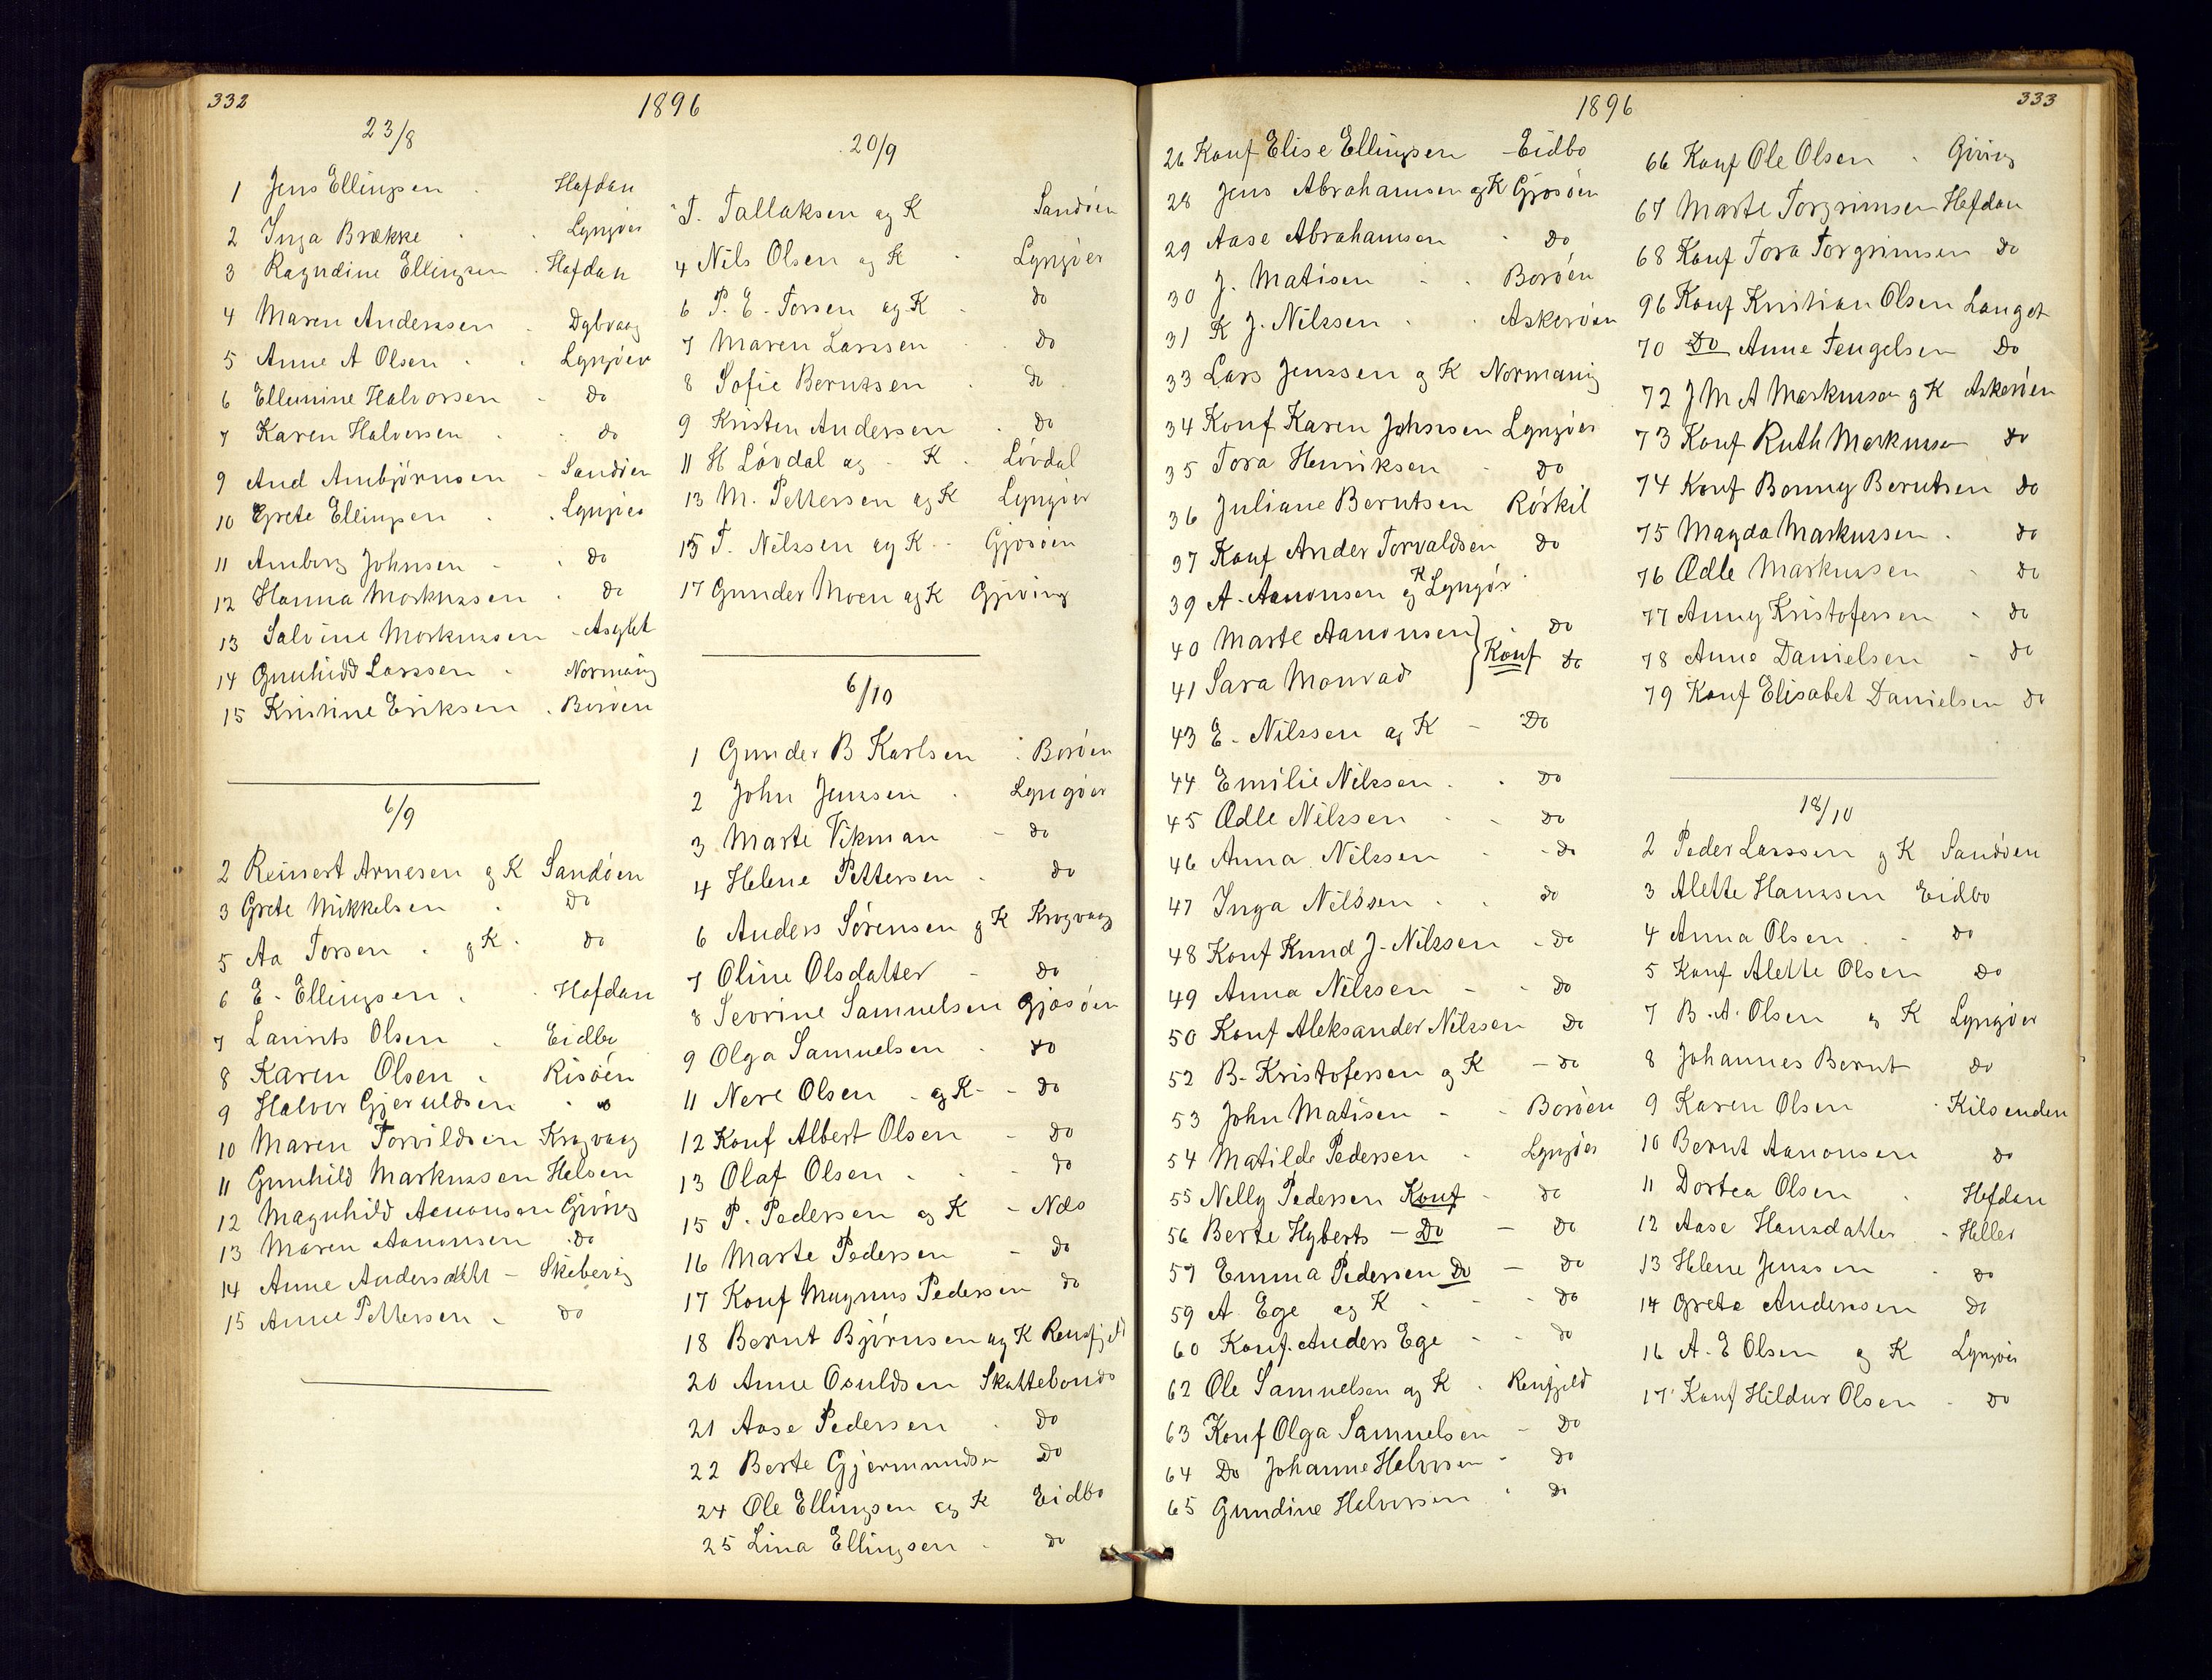 332
1896
23/8
1 Jens Ellingsen . Hafdan
2 Inga Brække . . Lyngöer
3 Ragndine Ellingsen . Hafdan
4 Maren Anderssen . Dybvaag
5 Anne A Olsen . . Lyngöer
6 Ellevine Halvorsen - do
7 Karen Halversen . . do
9 And Ambjörnsen - Sandöen
10 Grete Ellingsen . . Lyngöer
11 Amberg Johnsen . . do
12 Hanna Markussen . do
13 Salvine Markussen - Asylet
14 Gunhild Larssen . Normanvig
15 Kristine Eriksen . Boröen
6/9
2 Reinert Arnesen og K Sandöen
3 Grete Mikkelsen . do
5 Aa Torsen . og K . do
6 E - Ellingsen . . Hafdan
7 Laurits Olsen . Eidbo
8 Karen Olsen . Risöen
9 Halvor Gjeruldsen . do
10 Maren Torvildsen Krogvaag
11 Gunhild Markussen Helsen
12 Magnhild Aanonsen Giving
13 Maren Aanonsen . do
14 Anne Andersdatter - Skibevig
15 Anne Pettersen . do
20/9
T. Tallaksen og K Sandöen
4 Nils Olsen og K . Lyngöer
6 P. E - Torsen og K . do
7 Maren Larssen . do
8 Sofie Berntsen . do
9 Kristen Andersen . do
11 H Lövdal og - K . Lövdal
13 M. Pettersen og K Lyngöer
15 T. Nilssen og K - Gjösöen
17 Gunder Moen og K Gjiving
6/10
1 Gunder B Karlsen . Boröen
2 John Jenssen . Lyngöer
3 Marte Vikman - do
4 Helene Pettersen . do
6 Anders Sörensen og K Krogvaag
7 Oline Olsdatter - do
8 Sevrine Samuelsen Gjösöen
9 Olga Samuelsen . do
11 Nere Olsen . og K - - do
12 Konf Albert Olsen - do
13 Olaf Olsen . . - do
15 P. Pedersen og K - Næs
16 Marte Pedersen - do
17 Konf Magnus Pedersen do
18 Bernt Björnsen og K Rensfjeld
20 Anne Osuldsen Skattebonds
21 Aase Pedersen . do
22 Berte Gjermundsen Do
24 Ole Ellingsen og K Eidbo
25 Lina Ellingsen . do
1896
333
26 Konf Elise Ellingsen - Eidbo
28 Jens Abrahamsen og K Gjösöen
29 Aase Abrahamsen . Do
30 J. Matisen . . Boröen
31 K J. Nilssen . . Askeröen
33 Lars Jenssen og K Normanvig
34 Konf Karen Johnsen Lyngöer
35 Tora Henriksen - do
36 Juliane Berntsen Rörkil
37 Konf Ander Torvaldsen do
39 A - Aanonsen og K Lyngör
40 Marte Aanonsen . do
41 Sara Monrad } Konf do
43 E - Nilssen og K - Do
44 Emilie Nilssen . . do
45 Ædle Nilssen . - do
46 Anna Nilssen . - do
47 Inga Nilssen . . do
48 Konf Knud J - Nilssen - do
49 Anna Nilssen - - do
50 Konf Aleksander Nilssen do
52 B - Kristofersen og K - do
53 John Matisen - - Boröen
54 Matilde Pedersen . Lyngöer
55 Nelly Pedersen Konf - do
56 Berte Hyberts - Do - do
57 Emma Pedersen Do - do
59 A. Ege og K . - - do
60 Konf. Anders Ege - - do
62 Ole Samuelsen og K . Rensfjeld
63 Konf Olga Samuelsen - do
64 Do Johanne Halvorsen - do
65 Gundine Halvorsen . do
66 Konf Ole Olsen . Giving
67 Marte Torgrimsen Hafdan
68 Konf Tora Torgrimsen do
96 Konf Kristian Olsen Langet
70 Do Anne Tengelsen do
72 J M A Markussen og K Askeröen
73 Konf Ruth Markussen do
74 Konf Bonny Berntsen do
75 Magda Markussen . do
76 Ædle Markussen - do
77 Anny Kristofersen - do
78 Anne Danielsen - do
79 Konf Elisabet Danielsen do
18/10
2 Peder Larssen og K Sandöen
3 Alette Hanssen Eidbo
4 Anna Olsen . - do
5 Konf Alette Olsen do
7 B. A. Olsen og K Lyngöer
8 Johannes Bernt do
9 Karen Olsen . Kilsenden
10 Bernt Aanonsen do
11 Dortea Olsen . Hafdan
12 Aase Hansdatter . Heller
13 Helene Jenssen . do
14 Grete Anderssen do
16 A. E Olsen og K Lyngöer
17 Konf Hildur Olsen . do